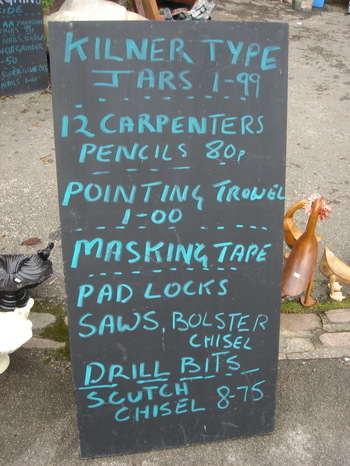 KILNER TYPE
JARS 1-99
12 CARPENTERS
PENCILS 80p
POINTING TROWEL
1-00
MASKING TAPE
PAD LOCKS
SAWS, BOLSTER
CHISEL
DRILL BITS
SCUTCH
CHISEL 8-75